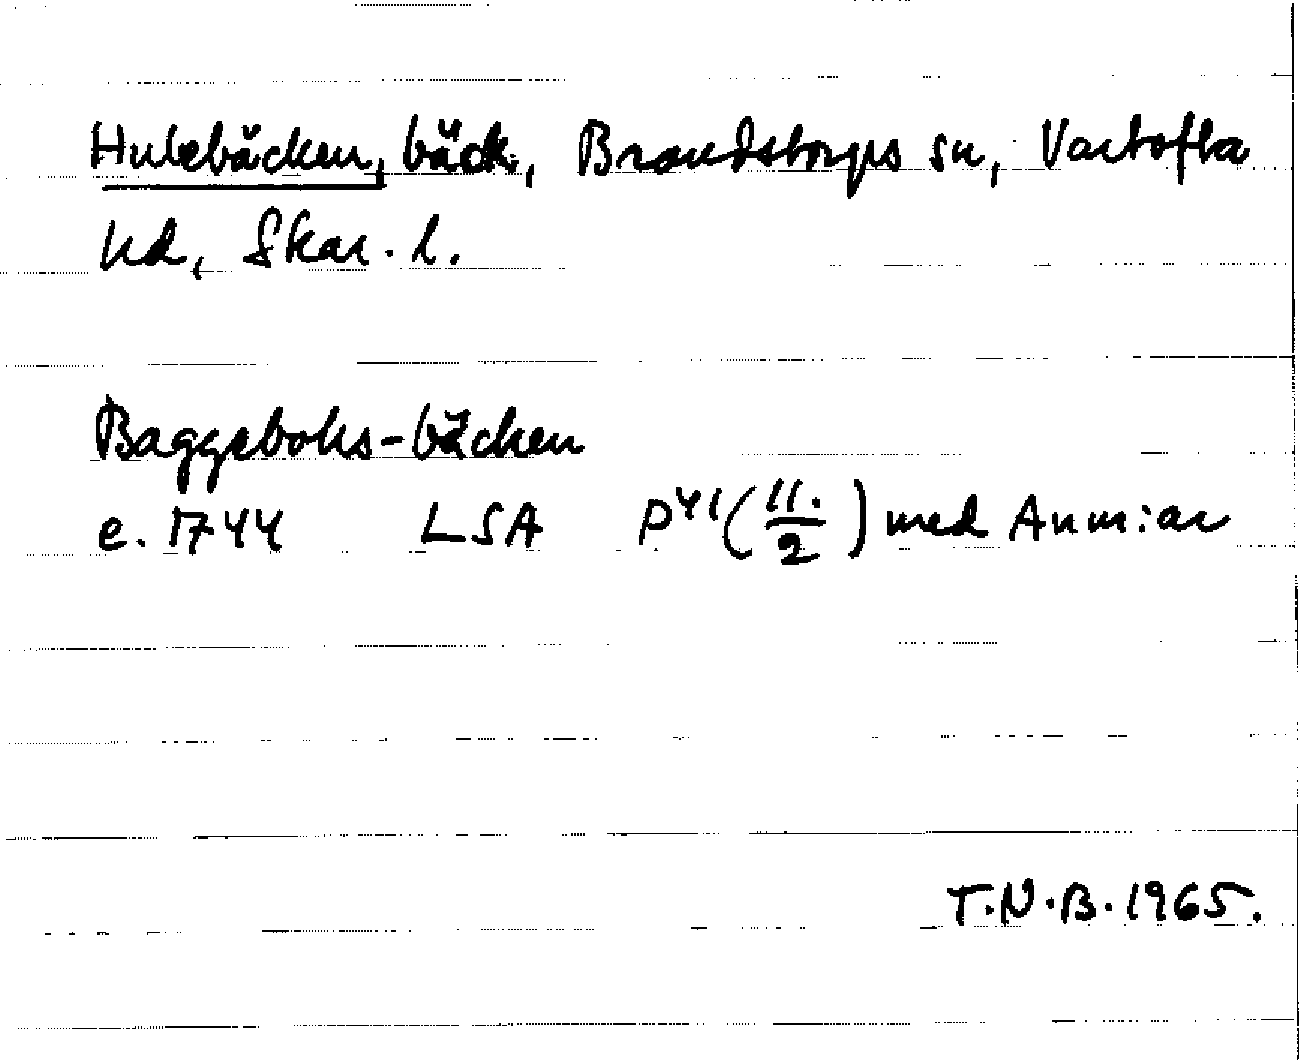 Hulebäcken, bäck, Brandstorps sn, Vartofta
hd, Skar. l.
Baggebohs-bäcken
e. 1744 LSA P41 (11./2) med Anm:ar
T.N.B. 1965.